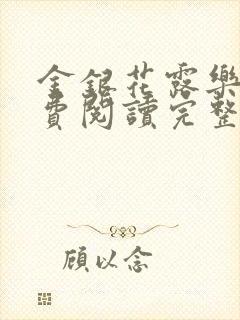 金銀花露樂
費閱讀完整
顧以念